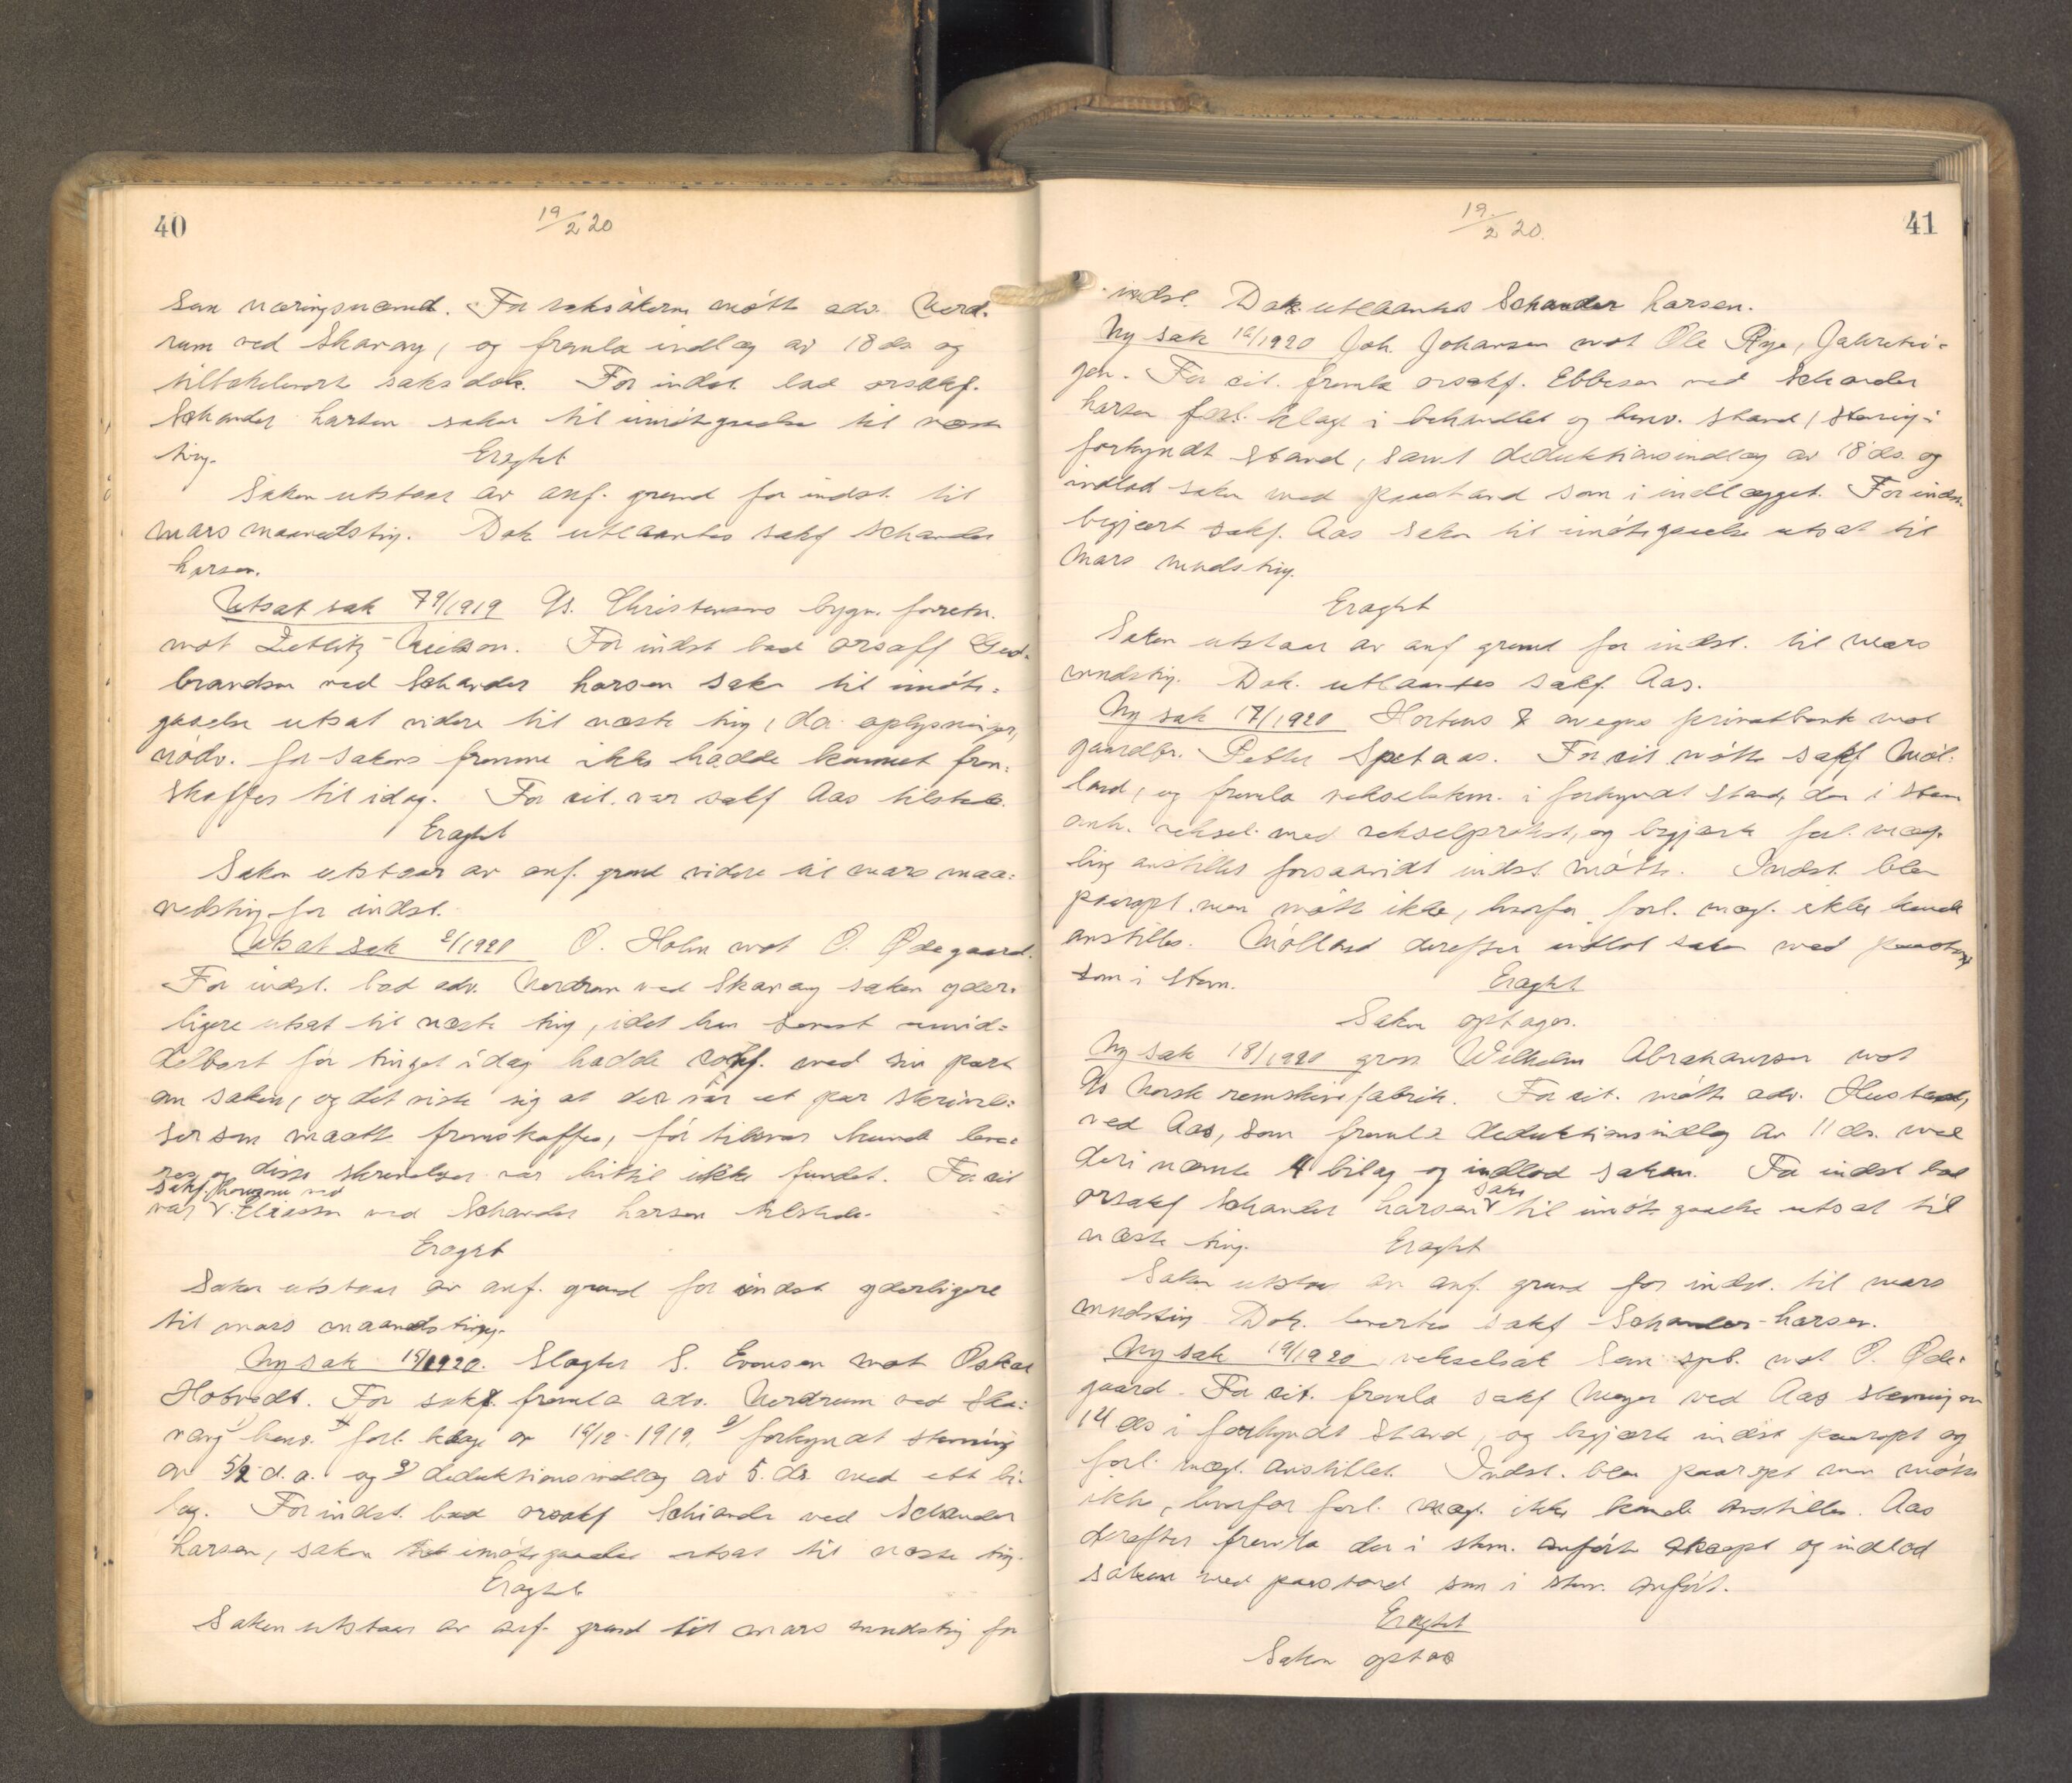 40
19/2 20
Sem næringsnævnd. For saksøkerne møtte adv. Nerd-
rum ved Skavang, og fremla indlæg av 18 ds. og
tilbakeleverte saksdok. For indst. bad orsakf.
Schander Larsen saken til imøtegaaelse til næste
ting. Eragtet
Saken utstaar av anf. grund for indst. til
mars maanedsting. Dok. utlaantes sakf. Schander
Larsen.
Utsat sak 79/1919 As. Christensens bygn. forretn.
mot Zetlitz-Nielsen. For indst. bad orsakf. Gud-
brandsen ved Schander Larsen saken til imøte-
gaaelse utsat videre til næste ting, da oplysninger,
nødv. for sakens fremme ikke hadde kunnet frem-
skaffes til idag. For cit. var sakf. Aas tilstede.
Eragtet
Saken utstaar av anf. grund videre til mars maa-
nedsting for indst.
Utsat sak 2/1920 O. Holm mot O. Ødegaard.
For indst. bad adv. Nerdrum ved Skavang saken yder-
ligere utsat til næste ting, idet han senest umid-
delbart før tinget idag hadde konf. med sin part
om saken, og det viste sig at der var et par skrivel-
ser som maatte fremskaffes, før tilsvar kunde leve-
res og disse skrivelser var hittil ikke fundet. For cit
sakf. ved
var Eliassen ved Schander Larsen tilstede.
Eragtet
Saken utstaar av anf. grund for indst yderligere
til mars maanedsting.
Ny sak 15/1920. Slagter S. Evensen mot Oskar
Hotvedt. For saks. fremla adv. Nerdrum ved Ska-
vang 1) henv. forl. klage av 16/12-1919, 2) forkyndt stevning
av 5/2 d.a. og 3) deduktionsindlæg av 5. ds. med ett bi-
lag. For indst. bad orsakf Schiander ved Schander
Larsen, saken til imøtegaaelse utsat til næste ting.
Eragtet
Saken utstaar av anf. grund til mars mndsting for
41
19/2 20.
indst. Dok. utlaantes Schander Larsen.
Ny sak 16/1920 Joh. Johansen mot Ole Rye, Jahrstei-
gen. For cit. fremla orsakf. Ebbesen ved Schander
Larsen forl. klage i behandlet og henv. stand, stevning i
forkyndt stand, samt deduktionsindlæg av 18 ds. og
indlod saken med paastand som i indlægget. For indst.
begjært sakf. Aas saken til imøtegaaelse utsat til
mars mndsting.
Eragtet
Saken utstaar av anf grund for indst. til mars
mndsting. Dok. utlaantes sakf. Aas.
Ny sak 17/1920 Hortens & omegns privatbank mot
gaardbr. Petter Spetaas. For cit. møtte sakf Møl-
land, og fremla vekselstevn. i forkyndt stand, den i stevn
anh. veksel med vekselprotest, og begjærte forl. mæg-
ling anstillet forsaavidt indst. møtte. Indst. blev
paaropt men møtte ikke, hvorfor forl. mægl. ikke kunde
anstilles. Mølland derefter indlot saken med paastand
som i stevn. Eragtet
Saken optages.
Ny sak 18/1920 gros. Wilhelm Abrahamsen mot
As Norsk remskivefabrik. For cit. møtte adv. Hustad,
ved Aas, som fremla deduktionsindlæg av 11 ds. med
deri nævnte 4 bilag og indlod saken. For indst bad
saken
orsakf Schander Larsen til imøtegaaelse utsat til
næste ting. Eragtet
Saken utstaar av anf. grund for indst. til mars
mndsting. Dok. levertes sakf. Schander-Larsen.
Ny sak 19/1920, vekselsak Sem spb. mot O. Øde-
gaard. For cit. fremla sakf Meyer ved Aas stevning av
14 ds i forkyndt stand, og begjærte indst paaropt og
forl. mægl. anstillet. Indst. blev paaropt men møtte
ikke, hvorfor forl. mægl. ikke kunde anstilles. Aas
derefter fremla den i stevn. anførte aksept og indlod
saken med paastand som i stevn. anført.
Eragtet
Saken optas